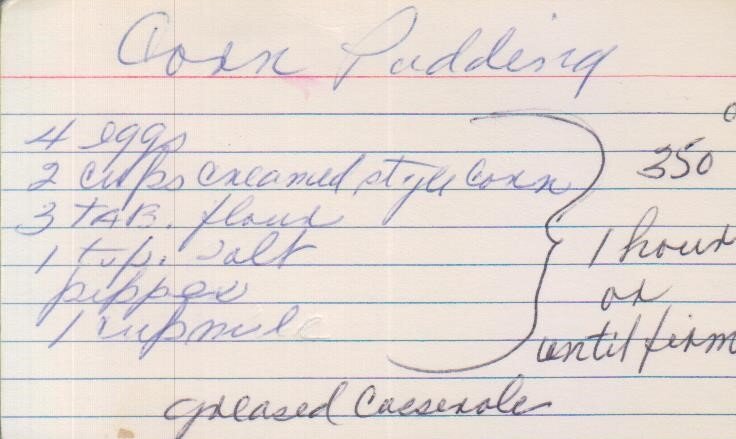 Corn Pudding
4 eggs
2 cups creamed style corn
3 TAB. flour
1 tsp. salt
pepper
1 cup milk
350°
1 hour
or
until firm
greased casserole